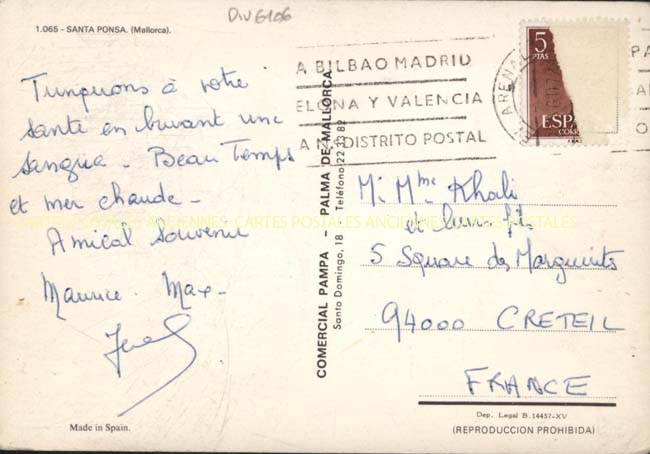 DIV6106
1.065 - SANTA PONSA. (Mallorca).
Trinquons à votre
santé en buvant une
sangria - Beau Temps
et mer chaude -
Amical souvenir
Maurice. Max -
Made in Spain.
COMERCIAL PAMPA - PALMA DE MALLORCA
Santo Domingo, 18 - Teléfono 22 33 82
5
PTAS
ESPA
CORR
ARENAL
A BILBAO MADRID
ELONA Y VALENCIA
DISTRITO POSTAL
PA
O
M. Mme Khali
et leur fils
5 Square des Marguerites
94000 CRETEIL
FRANCE
Dep. Legal B. 14457-XV
(REPRODUCCION PROHIBIDA)
CARTES POSTALES ANCIENNES CARTES POSTALES ANCIENNES CARTES POSTALES